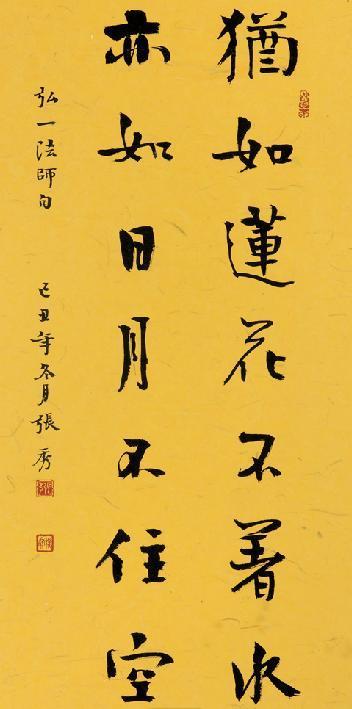 猶如蓮花不著水
亦如日月不住空
弘一法師句
己丑年冬月張秀